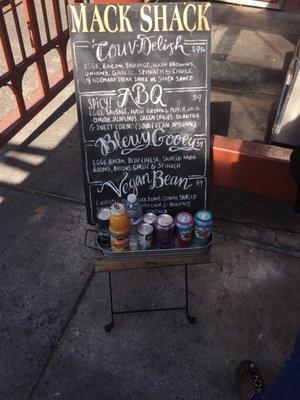 MACK SHACK
'Couv-Delish $9.50
EGGS, BACON, SAUSAGE, HASH BROWNS,
ONIONS, GARLIC, SPINACH & CHOICE
OF ROSEMARY STEAK SAUCE OR SHACK SAUCE
SPICY! ABQ $9
EGGS, SAUSAGE, HASH BROWNS, PEPPER JACK,
ONION, JALAPENOS, GREEN CHILIES, CILANTRO
& SWEET CORN (SOUR CREAM OPTIONAL)
Bleuy Gooey $9
EGGS, BACON, BLEU CHEESE, SAUTEED MUSH-
ROOMS, ONIONS, GARLIC & SPINACH
Vegan Bean $9